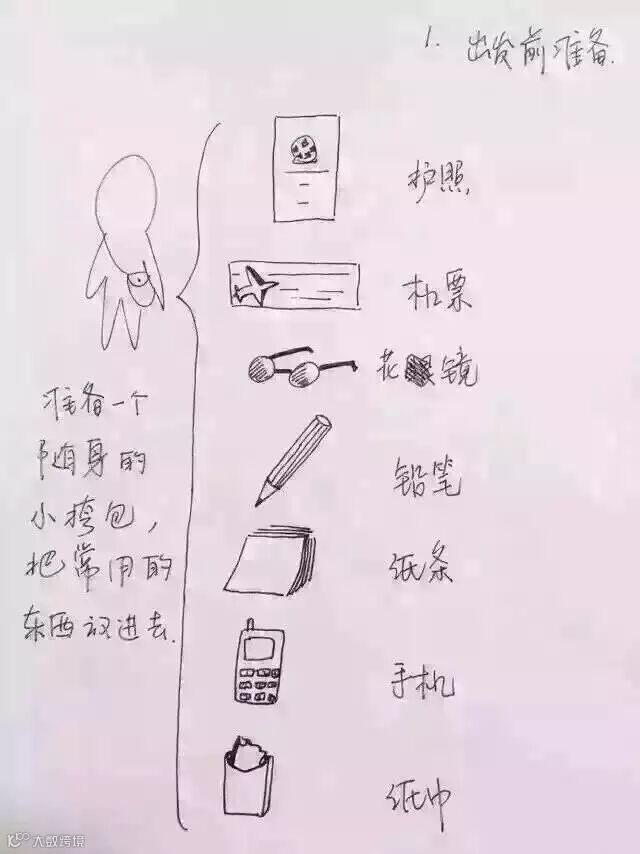 1. 出发前准备.
护照
机票
花镜
铅笔
纸条
手机
纸巾
准备一个
随身的
小挎包，
把常用的
东西进去.
大数跨境